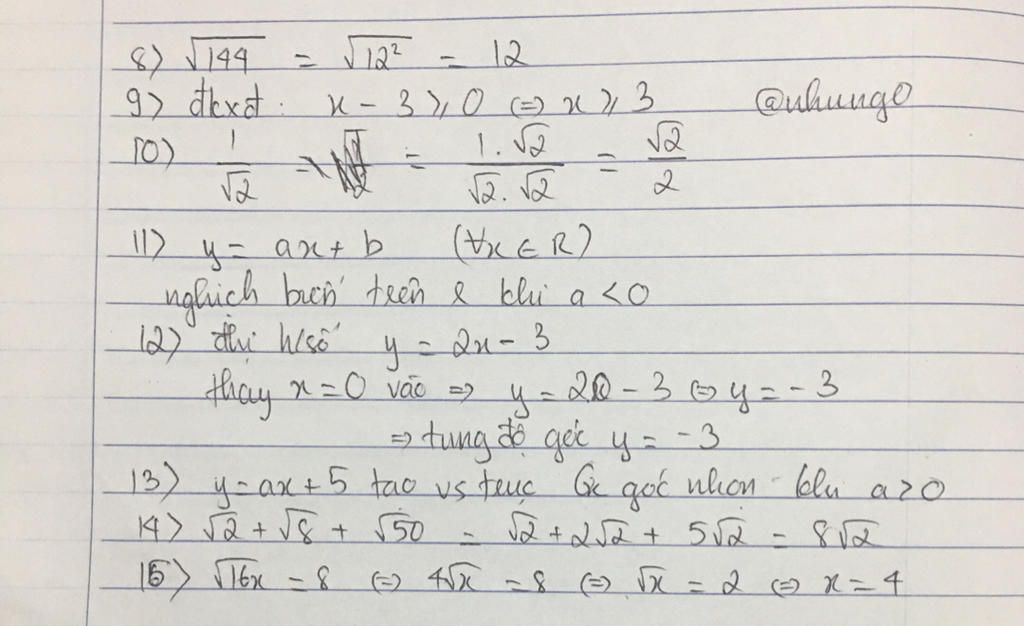 8) √144 = √12² = 12
9) đkxđ: x - 3 ⩾ 0 ⇔ x ⩾ 3 @nhung0
10) 1/√2 = (1.√2)/(√2.√2) = √2/2
11) y = ax + b (∀x ∈ R)
nghịch biến trên R khi a < 0
12) đthị h/số y = 2x - 3
thay x = 0 vào ⇒ y = 2.0 - 3 ⇔ y = -3
⇒ tung độ gốc y = -3
13) y = ax + 5 tạo vs trục Ox góc nhọn khi a > 0
14) √2 + √8 + √50 = √2 + 2√2 + 5√2 = 8√2
15) √16x = 8 ⇔ 4√x = 8 ⇔ √x = 2 ⇔ x = 4